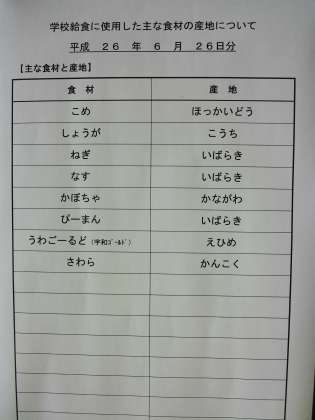 学校給食に使用した主な食材の産地について
平成 26 年 6 月 26日分
【主な食材と産地】
食 材 産 地
こめ ほっかいどう
しょうが こうち
ねぎ いばらき
なす いばらき
かぼちゃ かながわ
ぴーまん いばらき
うわごーるど(宇和ｺﾞｰﾙﾄﾞ) えひめ
さわら かんこく